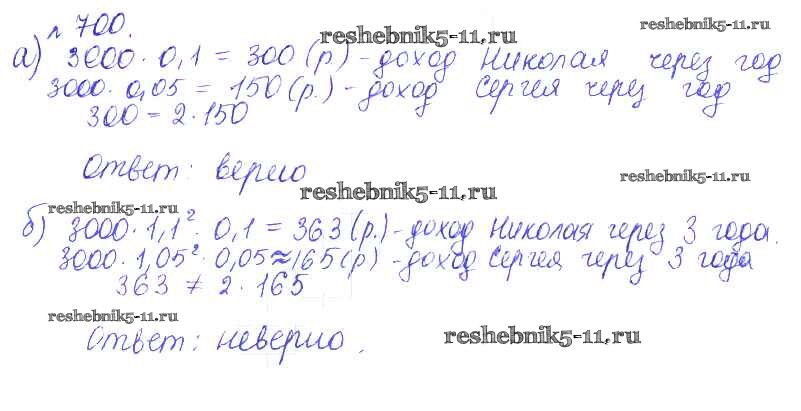 № 700.
reshebnik5-11.ru
reshebnik5-11.ru
а) 3000 · 0,1 = 300 (р.) - доход Николая через год
3000 · 0,05 = 150 (р.) - доход Сергея через год
300 = 2 · 150
Ответ: верно
reshebnik5-11.ru
reshebnik5-11.ru
reshebnik5-11.ru
б) 3000 · 1,1² · 0,1 = 363 (р.) - доход Николая через 3 года.
3000 · 1,05² · 0,05 ≈ 165 (р) - доход Сергея через 3 года
363 ≠ 2 · 165
reshebnik5-11.ru
Ответ: неверно.
reshebnik5-11.ru